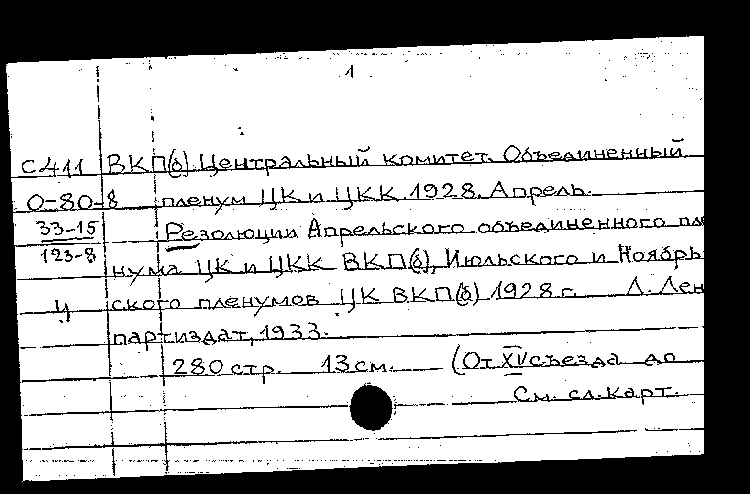 1
С411 ВКП(б). Центральный комитет. Объединенный
0-80-8 пленум ЦК и ЦКК. 1928. Апрель.
33-15 Резолюции Апрельского объединенного пле
123-8 нума ЦК и ЦКК ВКП(б), Июльского и Ноябрь
Ч ского пленумов ЦК ВКП(б) 1928 г. Л. Лен
партиздат, 1933.
280 стр. 13 см. (От XV съезда до
См. сл. карт.